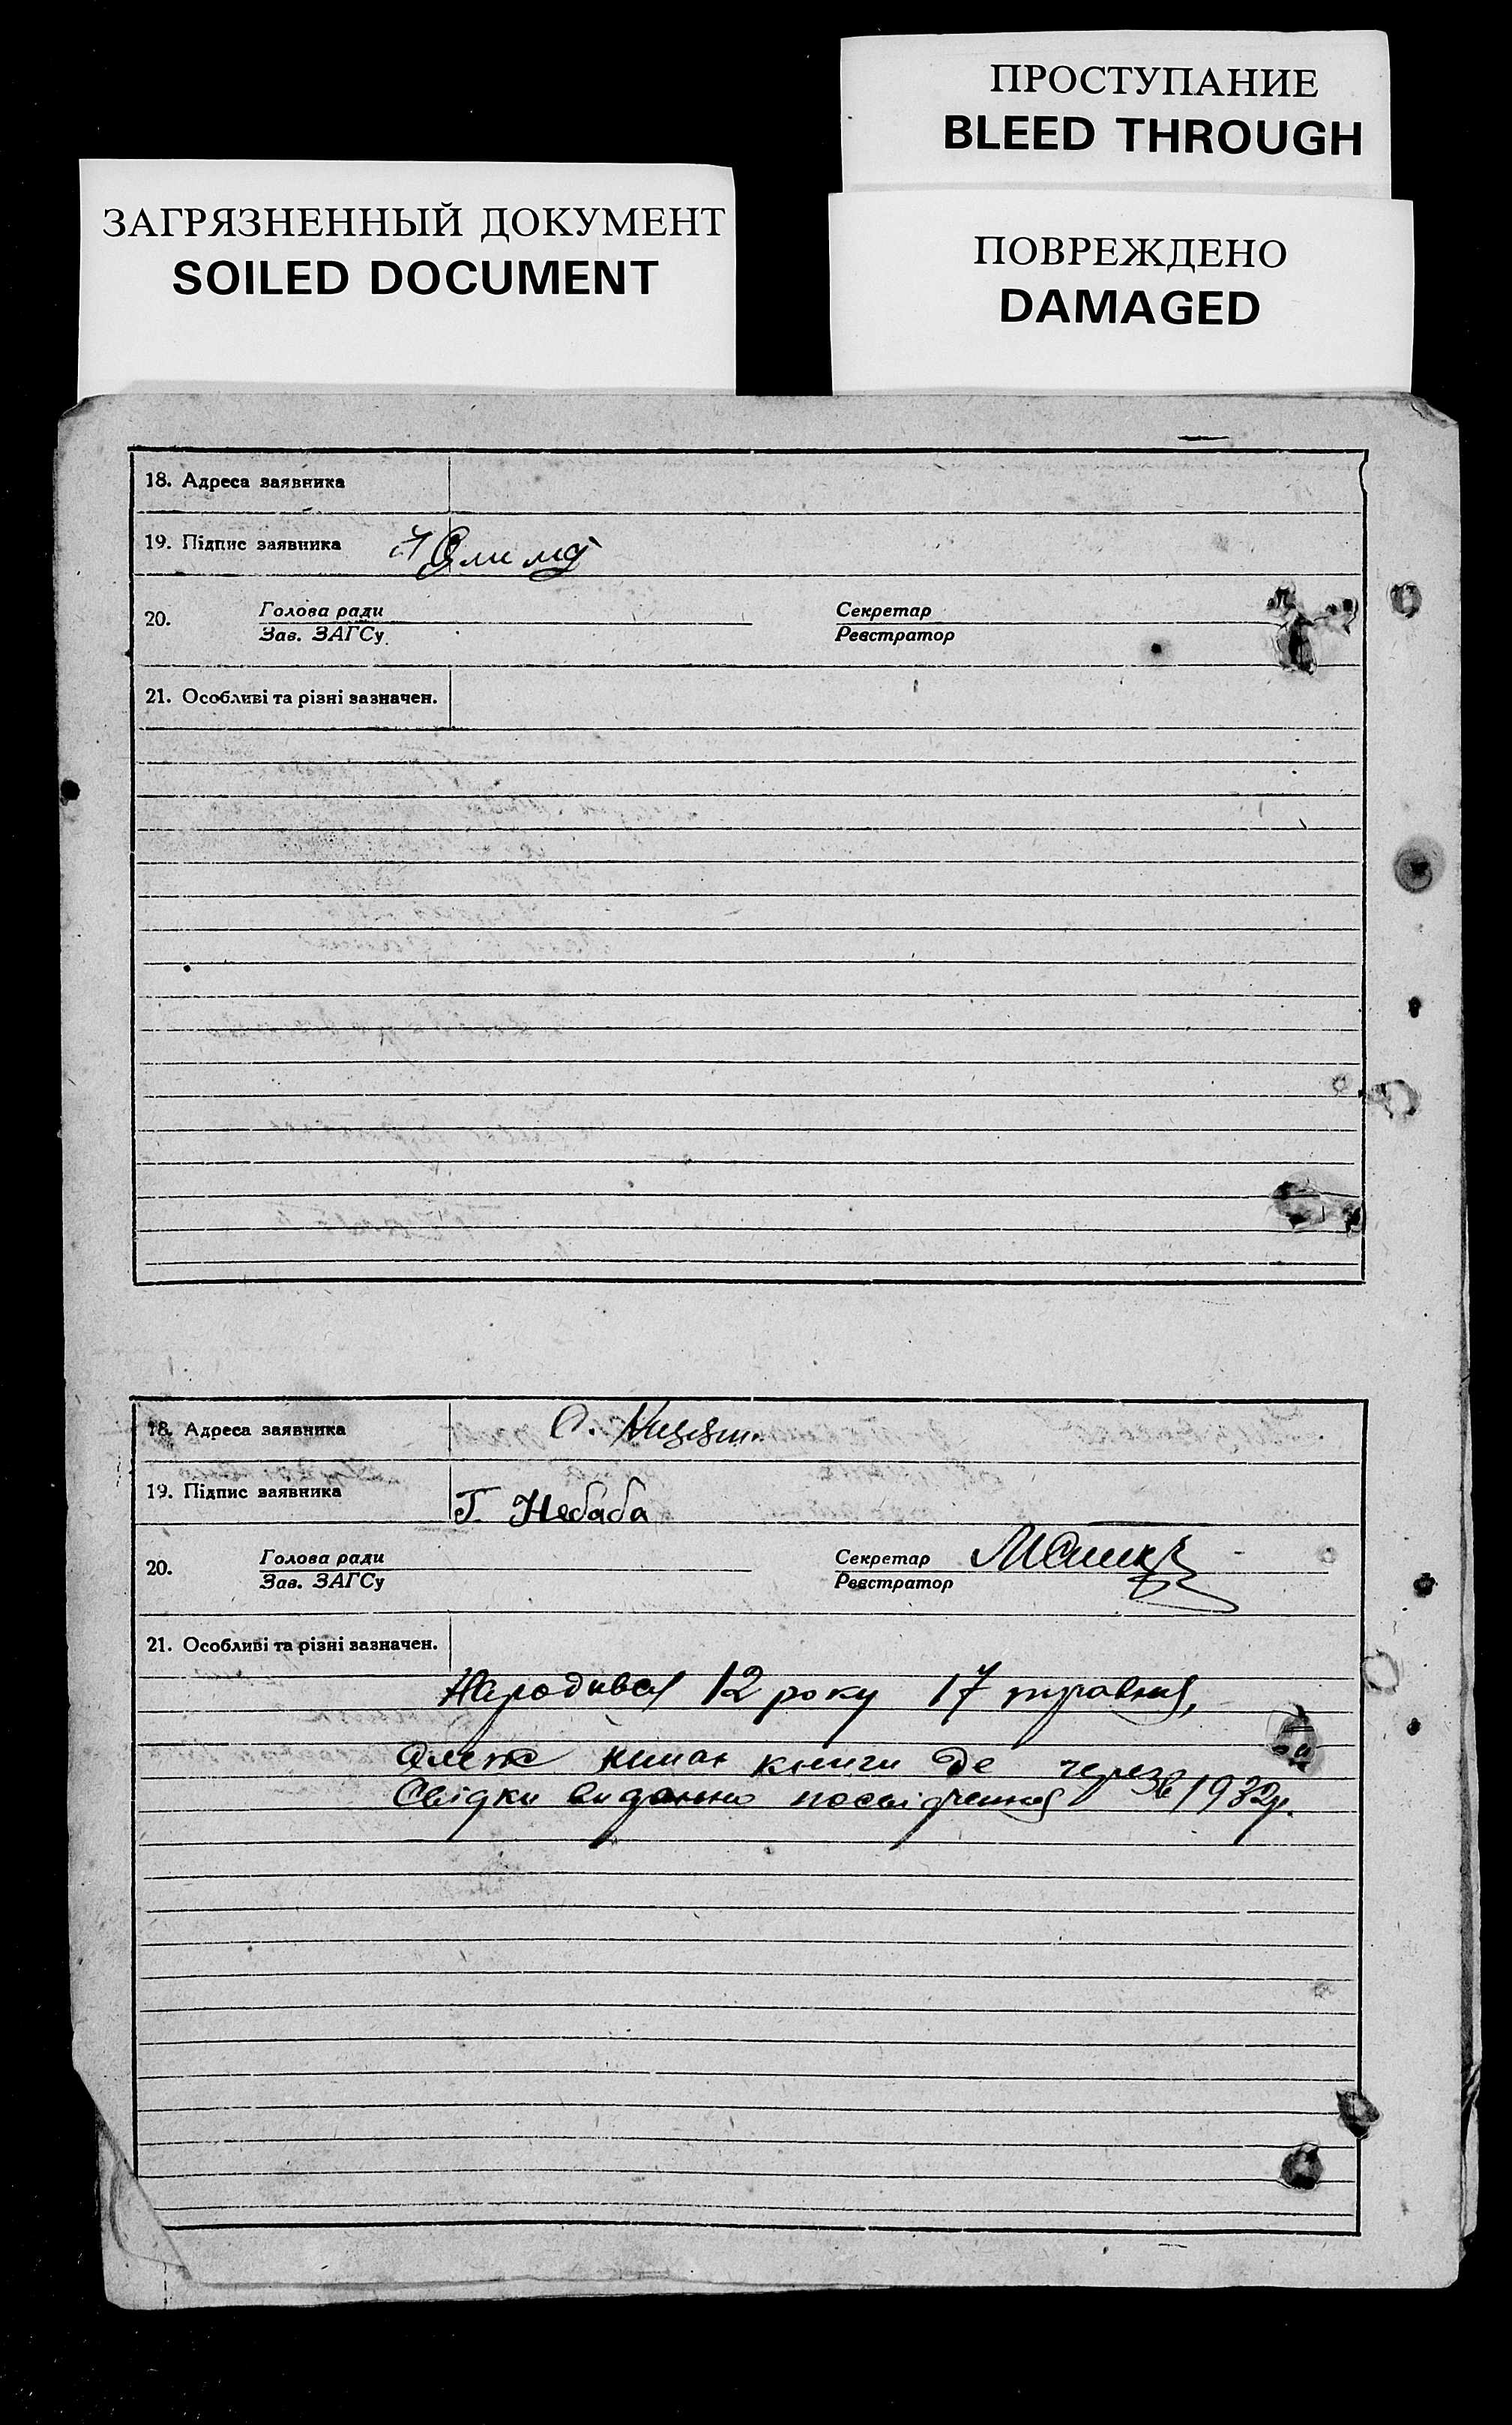 ПРОСТУПАНИЕ
BLEED THROUGH
ЗАГРЯЗНЕННЫЙ ДОКУМЕНТ
SOILED DOCUMENT
ПОВРЕЖДЕНО
DAMAGED
18. Адреса заявника
19. Підпис заявника
20. Голова ради Секретар
Зав. ЗАГСу Реєстратор
21. Особливі та різні зазначен.
18. Адреса заявника С.
19. Підпис заявника Г. Небаба
20. Голова ради Секретар
Зав. ЗАГСу Реєстратор
21. Особливі та різні зазначен.
Народився 12 року 17 травня,
книги де через
Свідки виданно посвідчення в 1932р.